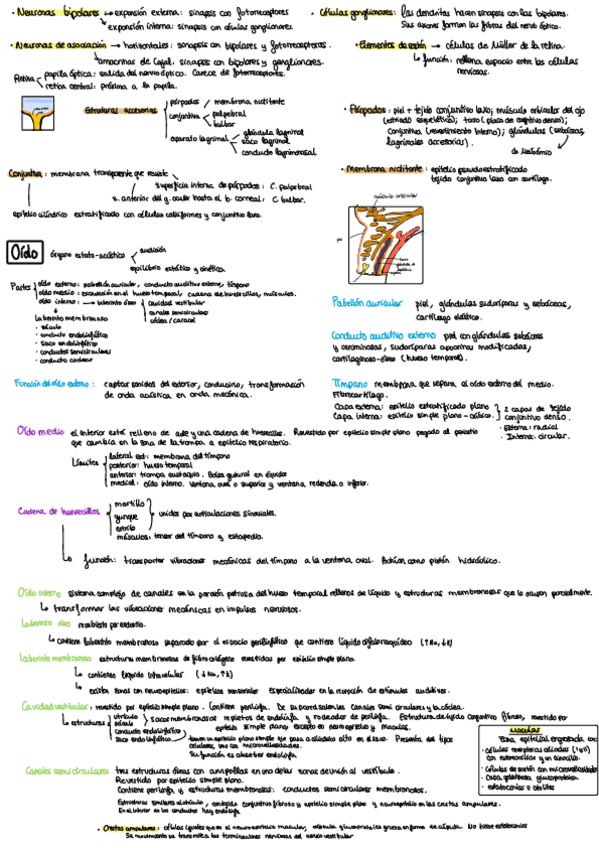 · Neuronas bipolares → expansión externa: sinapsis con fotorreceptores
expansión interna: sinapsis con células ganglionares.
· Células ganglionares: las dendritas hacen sinapsis con las bipolares.
Sus axones forman las fibras del nervio óptico.
· Neuronas de asociación → horizontales: sinapsis con bipolares y fotorreceptores.
amacrinas de Cajal: sinapsis con bipolares y ganglionares.
· Elementos de sostén → células de Müller de la retina.
función: rellena espacio entre las células nerviosas.
Retina
papila óptica: salida del nervio óptico. Carece de fotorreceptores.
retina central: próxima a la papila.
Estructuras accesorias
párpados / membrana nictitante
conjuntiva
palpebral
bulbar
aparato lagrimal
glándula lagrimal
saco lagrimal
conducto
· Párpados: piel + tejido conjuntivo laxo; músculo orbicular del ojo
(estriado esquelético); tarso (placa de conjuntivo denso);
conjuntiva (revestimiento interno); glándulas (sebáceas,
lagrimales accesorias).
Conjuntiva: membrana transparente que reviste
superficie interna de párpados: C. palpebral
s. anterior del g. ocular hasta el b. corneal: C bulbar.
epitelio cilíndrico estratificado con células caliciformes y conjuntivo laxo.
· Membrana nictitante: epitelio pseudoestratificado
tejido conjuntivo laxo con cartílago.
Oído
órgano estato-acústico
audición
equilibrio estático y cinético.
Partes
oído externo: pabellón auricular, conducto auditivo externo, tímpano
oído medio: excavación en el hueso temporal, cadena de huesecillos, músculos.
oído interno: → laberinto óseo
cavidad vestibular
canales semicirculares
cóclea / caracol
laberinto membranoso
· sáculo
· conducto endolinfático
· saco endolinfático
· conductos semicirculares
· conducto coclear
Pabellón auricular piel, glándulas sudoríparas y sebáceas,
cartílago elástico.
Conducto auditivo externo piel con glándulas sebáceas
y ceruminosas, sudoríparas apocrinas modificadas,
cartilaginoso-óseo (hueso temporal).
Función del oído externo: captar sonidos del exterior, conducirlo, transformación
de onda acústica en onda mecánica.
Tímpano membrana que separa al oído externo del medio.
Fibrocartílago.
Capa externa: epitelio estratificado plano
Capa interna: epitelio simple plano-cúbico.
2 capas de tejido
conjuntivo denso.
· Externa: radial
· Interna: circular.
Oído medio el interior está relleno de aire y una cadena de huesecillos. Revestido por epitelio simple plano pegado al periostio
que cambia en la zona de la trompa a epitelio respiratorio.
Límites
lateral ext: membrana del tímpano
posterior: hueso temporal
anterior: trompa eustaquio. Bolsa gutural en équidos
medial: oído interno. Ventana oval o superior y ventana redonda o inferior.
Cadena de huesecillos
martillo
yunque
estribo
unidos por articulaciones sinoviales.
músculos: tensor del tímpano y estapedio.
función: transportar vibraciones mecánicas del tímpano a la ventana oval. Actúan como pistón hidráulico.
Oído interno sistema complejo de canales en la porción petrosa del hueso temporal rellenos de líquido y estructuras membranosas que lo ocupan parcialmente.
transformar las vibraciones mecánicas en impulsos nerviosos.
laberinto óseo recubierto por endostio.
contiene laberinto membranoso separado por el espacio perilinfático que contiene líquido cefalorraquídeo (↑Na, ↓K)
Laberinto membranoso estructura membranosa de fibra colágeno revestidas por epitelio simple plano.
contienen líquido intracelular (↓Na, ↑K)
existen zonas con neuroepitelios: epitelios sensoriales especializados en la recepción de estímulos auditivos.
Cavidad vestibular: revestido por epitelio simple plano. Contiene perilinfa. De su pared salen los canales semicirculares y la cóclea.
estructuras
utrículo
sáculo
conducto endolinfático
saco endolinfático
sacos membranosos repletos de endolinfa y rodeados de perilinfa. Estructura de tejido conjuntivo fibroso, revestido por
epitelio simple plano, excepto en neuroepitelio y máculas.
tienen un epitelio plano simple que pasa a cilíndrico alto en el saco. Presenta dos tipos
celulares, uno con microvellosidades.
Su función es absorber endolinfa.
Máculas
Zona epitelial engrosada con:
· Células receptoras ciliadas (I y II)
· Células de sostén con microvellosidades
· Capa gelatinosa glucoproteica
· estatoconias u otolitos
Canales semicirculares tres estructuras óseas con ampollas en una de las zonas de unión al vestíbulo.
Revestida por epitelio simple plano.
Contiene perilinfa y estructuras membranosas: conductos semicirculares membranosos.
Estructuras similares al utrículo, con tejido conjuntivo fibroso y epitelio simple plano y neuroepitelio en las crestas ampulares.
En el interior de los conductos hay endolinfa
· Crestas ampulares: células iguales que en el neuroepitelio macular, cúpula glucoproteica gruesa en forma de cúpula. No tiene estatoconias
Su movimiento se transmite a las terminaciones nerviosas del nervio vestibular